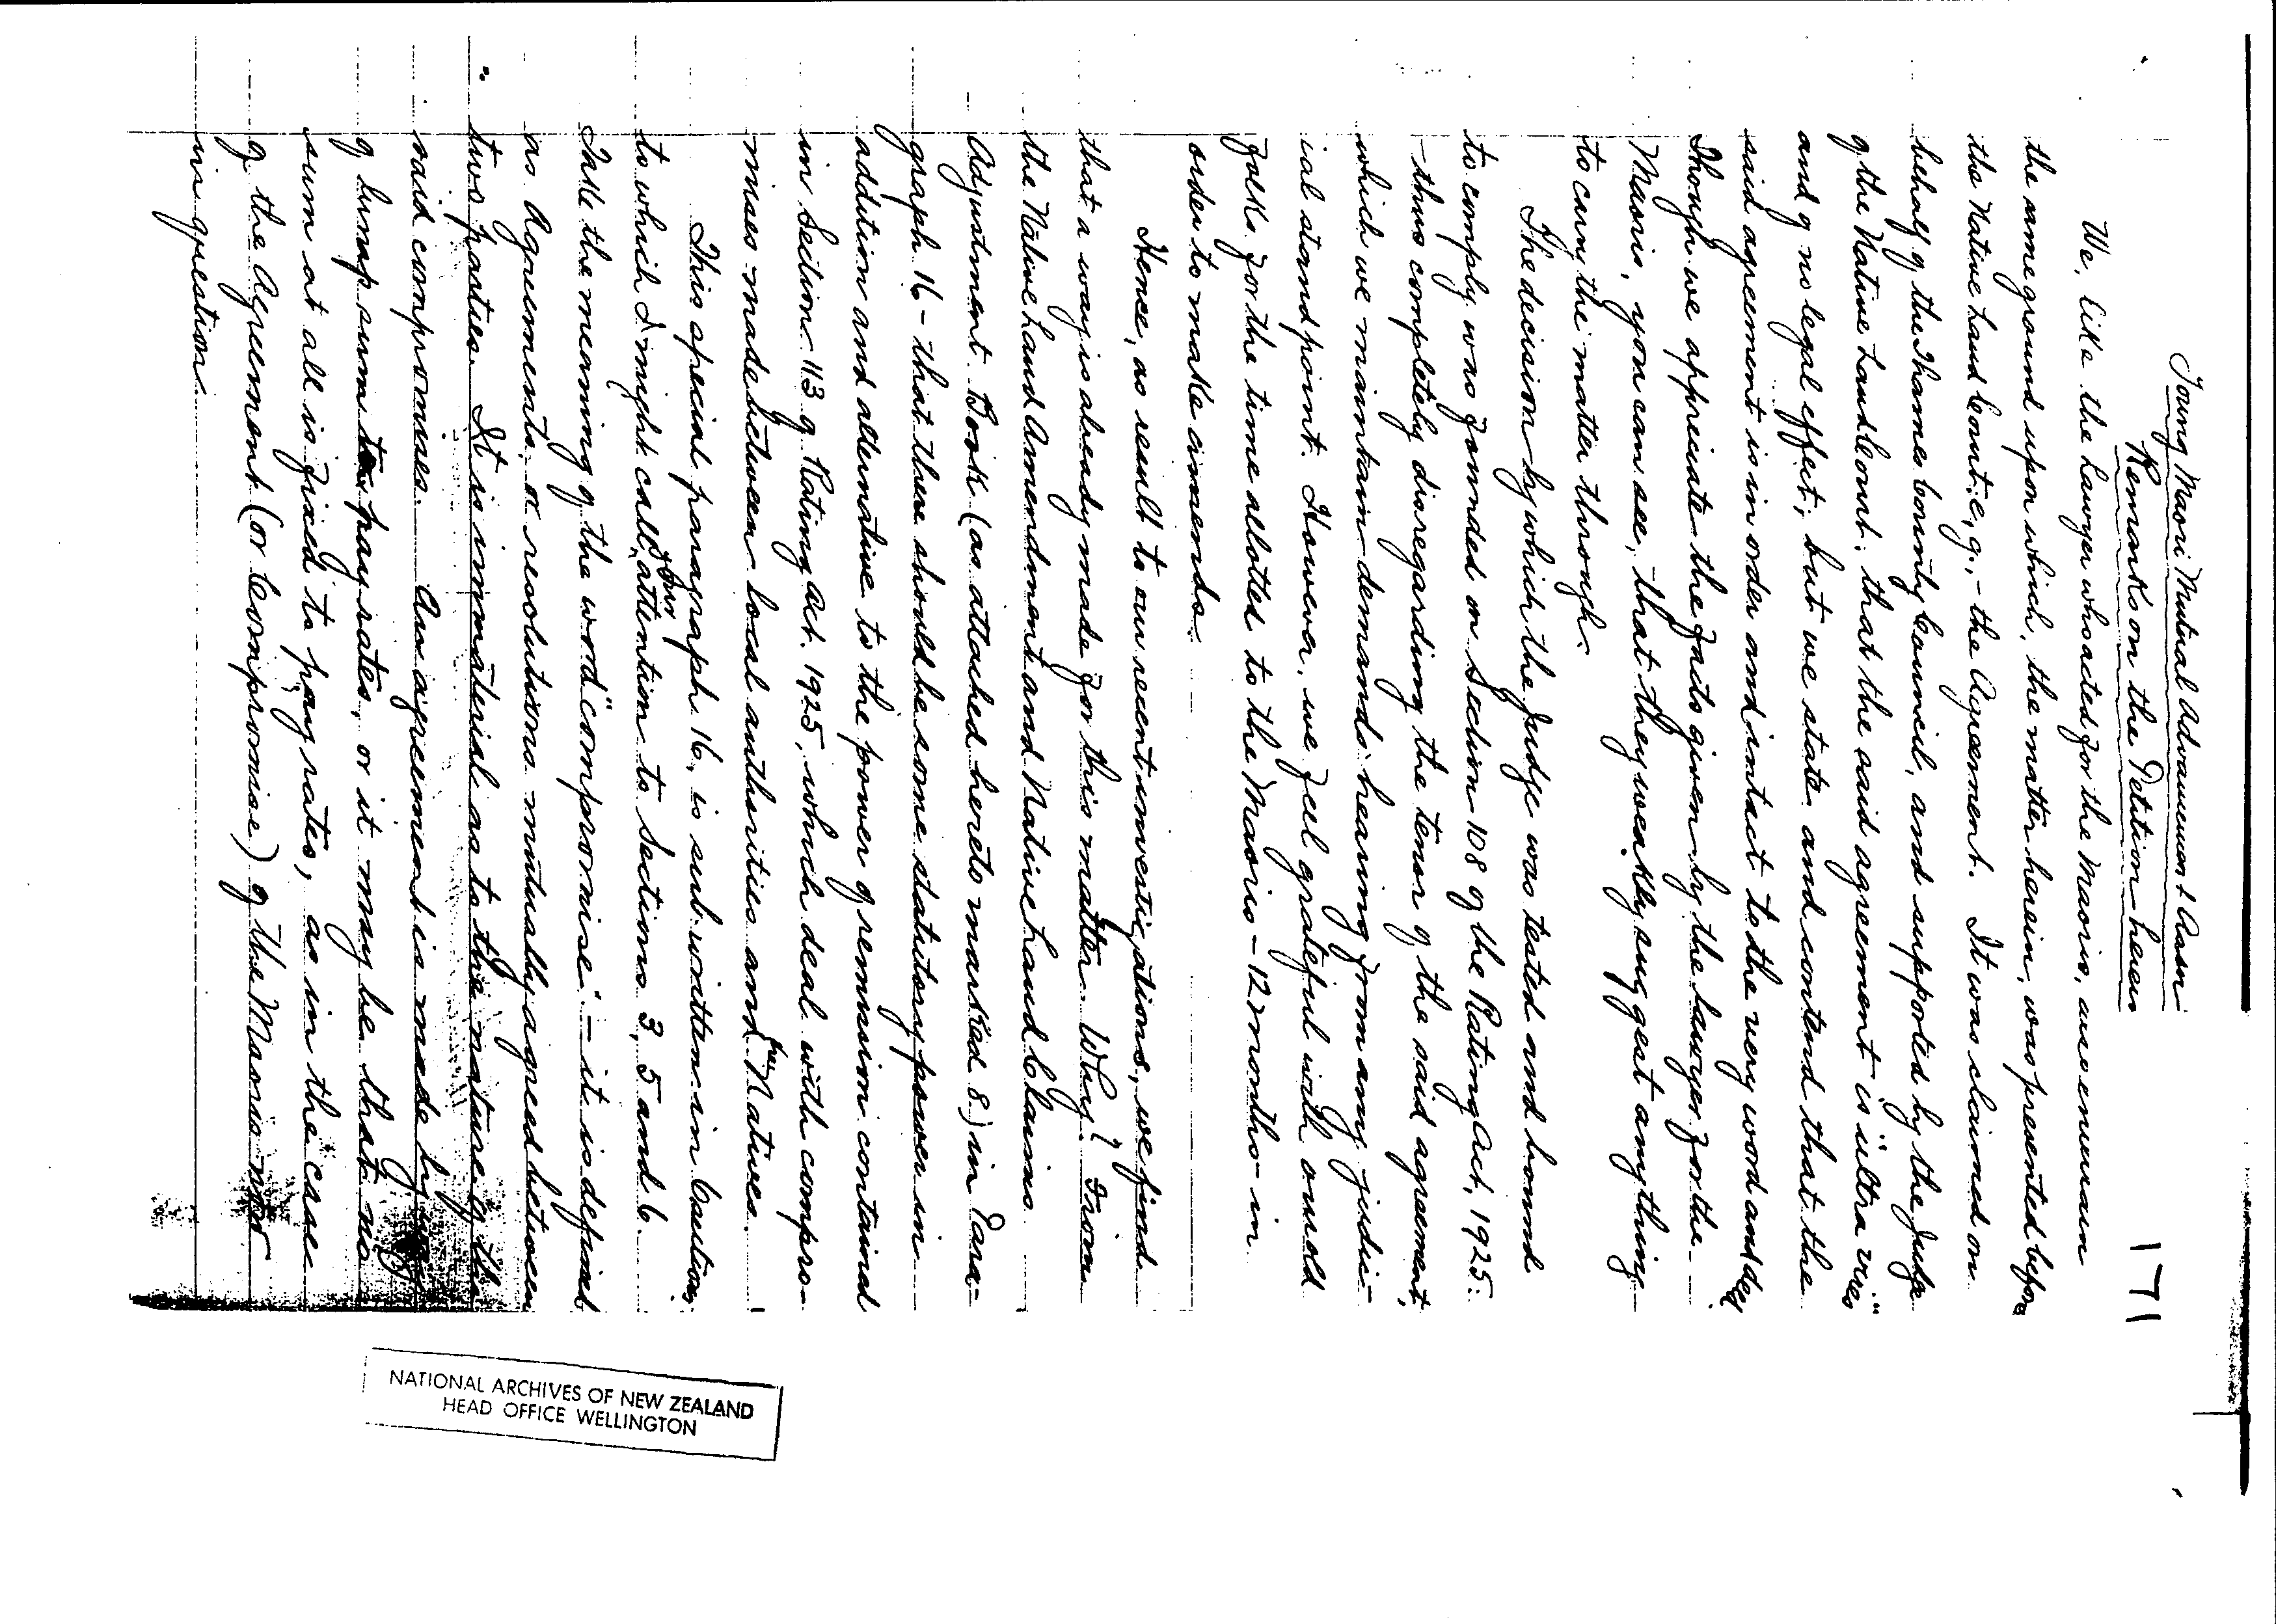 171
Young Maori Mutual Advancement Assn
Remarks on the Petition herein
We, like the Lawyer who acted for the Maoris, are
the same ground upon which, the matter herein, was presented before
the Native Land Court: e,g,- the Agreement. It was claimed on
behalf of the Thames County Council, and supported by the Judge
of the Native Land Court: that the said agreement is "ultra vires"
and of no legal effect; but we state and contend that the
said agreement is in order and intact to the very word and deed
Though we appriciate the facts given by the Lawyer for the
Maoris, you can see, that they weakly suggest anything
to carry the matter through.
The decision by which the Judge was tested and bound
to comply was founded on Section 108 of the Rating Act, 1925:
- thus completely disregarding the tenor of the said agreement,
which we maintain demands hearing from any judic-
ial standpoint. However, we feel grateful with our old
folks for the time allotted to the Maoris - 12 months - in
order to make amends.
Hence, as result to our recent investigations, we find
that a way is already made for this matter. Why? From
the Native Land Amendment and Native Land Claims
Adjustment Book (as attached hereto marked 8) in Para-
graph 16 - that there should be some statutory power in
addition and alternative to the power of remission contained
in Section 113 of Rating Act. 1925, which deal with compro-
mises made between local authorities and the Natives.
This special paragraph 16, is sub-written in Cautions
to which I might call your attention to Sections 3, 5 and 6.
Take the meaning of the word "compromise" - it is defined
as Agreements, or resolutions mutually agreed between
two parties. It is immaterial as to the nature of the
said compromises. An agreement is made by way
of lump sum to pay rates, or it may be that no
sum at all is fixed to pay rates, as in the case
of the Agreement (or Compromise) of the Maoris now
in question.
NATIONAL ARCHIVES OF NEW ZEALAND
HEAD OFFICE WELLINGTON